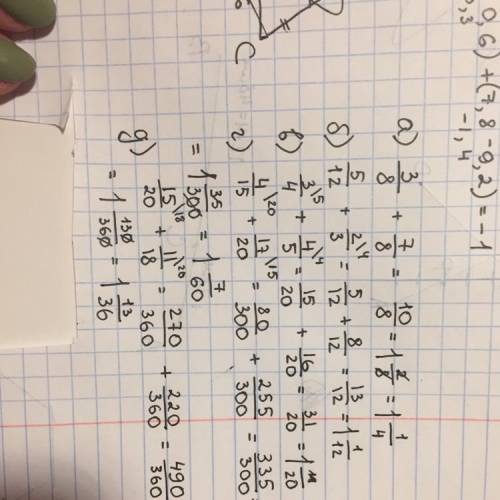 0,6) + (7,8 - 9,2) = -1
,3
-1,4
C
а) 3/8 + 7/8 = 10/8 = 1 2/8 = 1 1/4
б) 5/12 + 2\4/3 = 5/12 + 8/12 = 13/12 = 1 1/12
в) 3\5/4 + 4\4/5 = 15/20 + 16/20 = 31/20 = 1 11/20
г) 4\20/15 + 17\15/20 = 80/300 + 255/300 = 335/300 =
= 1 35/300 = 1 7/60
д) 15\18/20 + 11\20/18 = 270/360 + 220/360 = 490/360
= 1 130/360 = 1 13/36